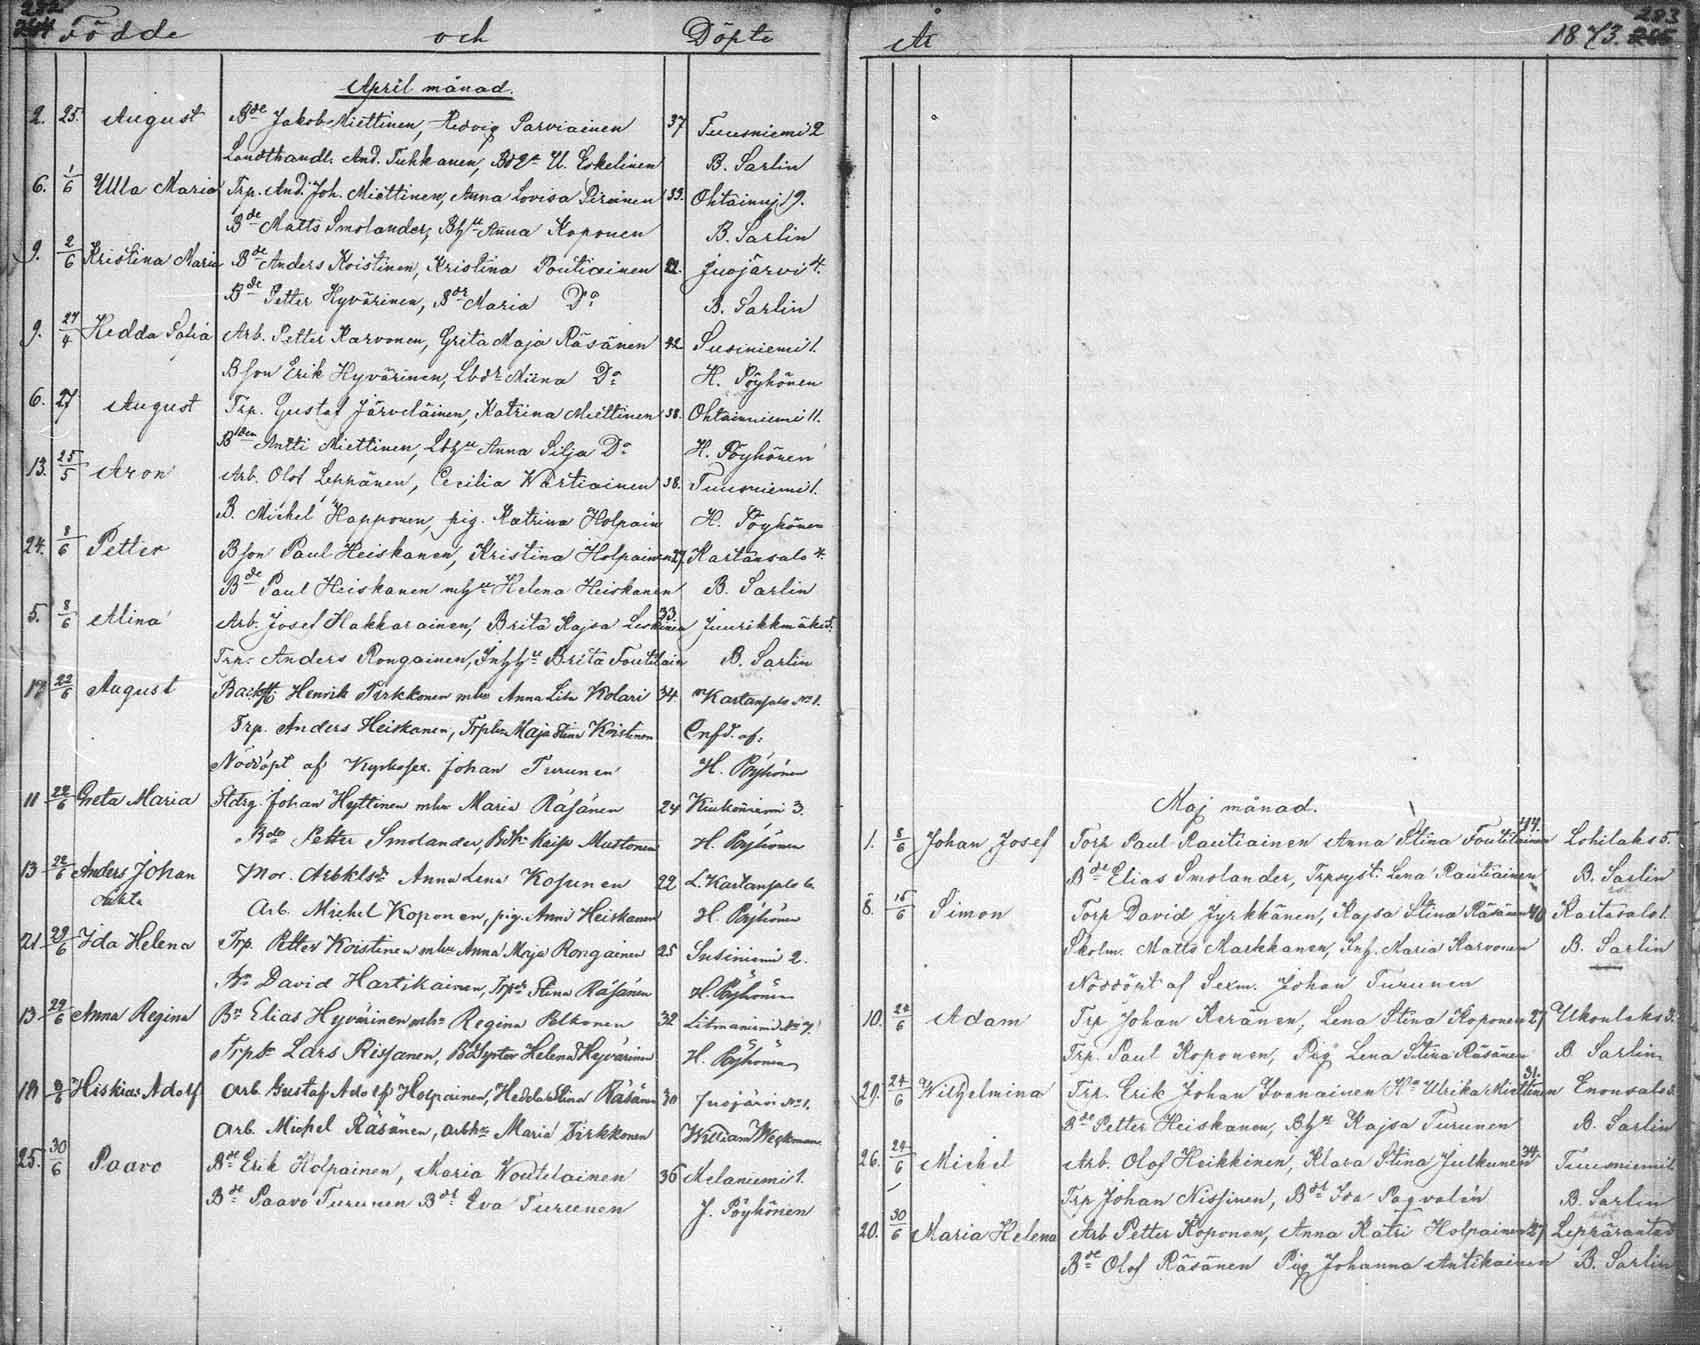 282
Födde och Döpte
April månad.
2. 25. August Bde Jakob Miettinen, Hedvig Parviainen 37 Tuusniemi 2
Landthandl. And. Tuhkanen, U. Eskelinen B. Sarlin
6. 1/6 Ulla Maria Trp. And. Joh. Miettinen, Anna Lovisa Piroinen 33. 19.
Bde Matts Smolander, Bhu Anna Koponen B. Sarlin
9. 2/6 Kristina Maria Bde Anders Koistinen, Kristina Poutiainen 22. Juojärvi 4.
Bde Petter Hyvärinen, Bdr Maria Do B. Sarlin
9. 27/4 Hedda Sofia Arb. Petter Karvonen, Greta Maja Räsänen 42 Susiniemi 1.
Bson Erik Hyvärinen, Lbdr Miina Do H. Pöyhönen
6. 27 August Trp. Gustaf Järveläinen, Katrina Miettinen 38. Ohtainniemi 11.
Bden Antti Miettinen, Anna Silja Do H. Pöyhönen
13. 25/5 Aron Arb. Olof Leppänen, Cecilia Wartiainen 38. Tuusniemi 1.
B. Michel Happonen, pig. Katrina Holpain H. Pöyhönen
24. 8/6 Petter Bson Paul Heiskanen, Kristina Holpainen 27. Kartansalo 4.
Bde Paul Heiskanen mhu Helena Heiskanen B. Sarlin
5. 8/6 Alina Arb. Josef Hakkarainen, Brita Kajsa Leskinen 33. Juurikkamäki 5.
Trp. Anders Rongainen, Inhhu Brita Toutilain B. Sarlin
17 22/6 August Henrik Tirkkonen mhu Anna Lisa Kolari 34. Kartansalo No 1.
Trp. Anders Heiskanen, Maja Stina Koistinen Cnfd. af:
Nöddöpt af Johan Turunen H. Pöyhönen
11 22/6 Greta Maria Johan Hyttinen mhu Maria Räsänen 24 Kiukoniemi 3.
Bde Petter Smolander, Kaisa Mustonen H. Pöyhönen
13 22/6 Anders Johan Anna Lena Koponen 22 L. Kartansalo 6.
oäkta Arb. Michel Koponen, pig. Anni Heiskanen H. Pöyhönen
21. 29/6 Ida Helena Trp. Petter Koistinen mhu Anna Maja Rongainen 25 Susiniemi 2.
Bn David Hartikainen, Trpdr Stina Räsänen H. Pöyhönen
13 29/6 Anna Regina Bn Elias Hyvärinen mhu Regina Pelkonen 32 Litmaniemi No 7.
Lars Rissanen, Helena Hyvärinen H. Pöyhönen
18 Hiskias Adolf Arb. Gustaf Adolf Holpainen, Hedda Stina Räsänen 30 Juojärvi No 1.
Arb. Michel Räsänen, Maria Tirkkonen William Weckman
25. 30/6 Paavo Bde Erik Holpainen, Maria Woutelainen 36 Melaniemi 1.
Bde Paavo Turunen Bde Eva Turunen J. Pöyhönen
283
År 1873.
Maj månad.
1. 8/6 Johan Josef Torp Paul Rautiainen Anna Stina Toutilainen 44. Lohilaks 5.
Bde Elias Smolander, Trpsyst. Lena Rautiainen B. Sarlin
8. 15/6 Simon Torp David Jyrkkänen, Kajsa Stina Räsänen 40 Kartasalo 1.
Skolm. Matts Markkanen, Inh. Maria Karvonen B. Sarlin
Nöddöpt af Sexm. Johan Turunen
10. 22/6 Adam Trp Johan Keränen, Lena Stina Koponen 27 Ukonlaks 3.
Trp. Paul Koponen, Pig Lena Stina Räsänen B. Sarlin
29. 24/6 Wilhelmina Trp. Erik Johan Ivanainen Ulrika Miettinen 31. Enonsalo 3.
Bde Petter Heiskanen, Bhu Kajsa Turunen B. Sarlin
26. 24/6 Michel Arb. Olof Heikkinen, Klara Stina Julkunen 34. Tuusniemi 1.
Trp Johan Nissinen, Bde Ida Pagvalén B. Sarlin
20. 30/6 Maria Helena Arb Petter Koponen, Anna Katri Holpainen 27 Leppäranta
Bde Olof Räsänen Pig Johanna Antikainen B. Sarlin